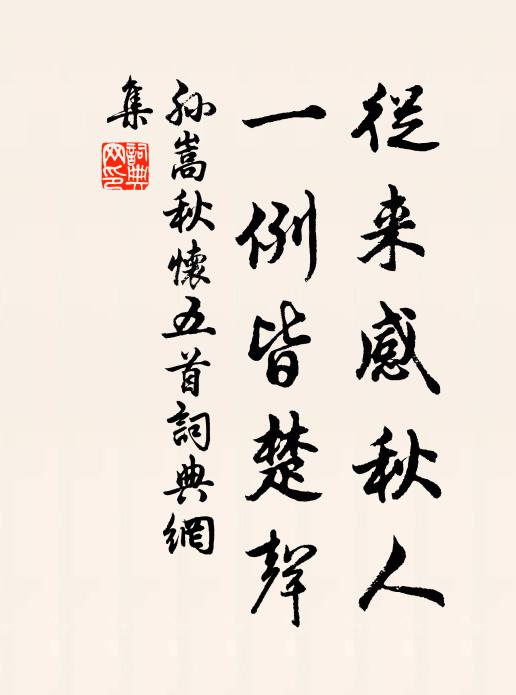 從来感秋人
一例皆楚聲
孫嵩秋懷五首詞典網
集
詞典
网印